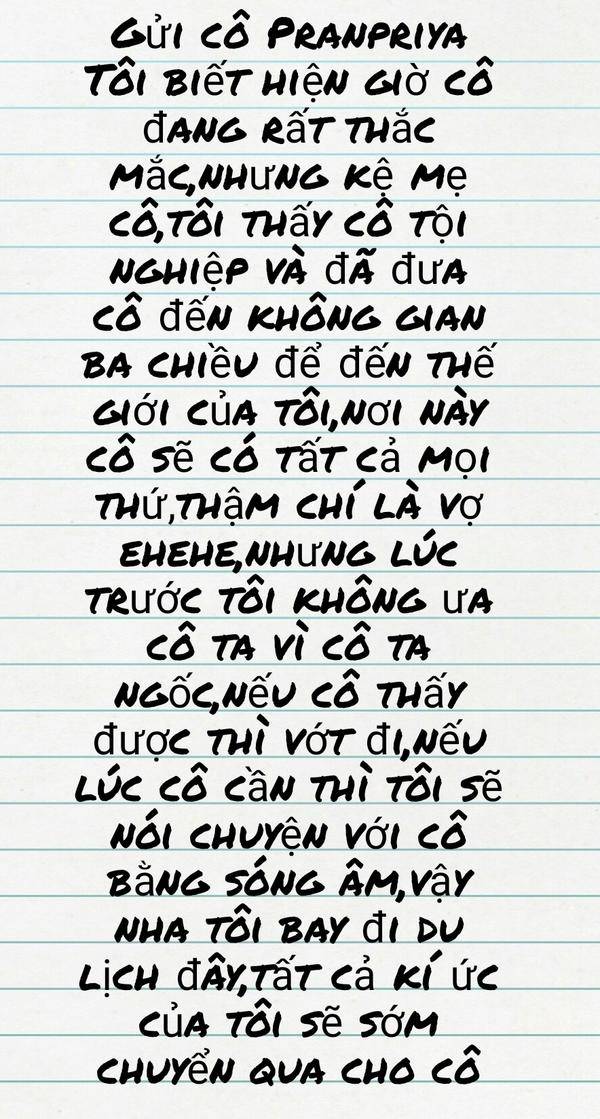 Gửi cô Pranpriya
Tôi biết hiện giờ cô
đang rất thắc
mắc,nhưng kệ mẹ
cô,tôi thấy cô tội
nghiệp và đã đưa
cô đến không gian
ba chiều để đến thế
giới của tôi,nơi này
cô sẽ có tất cả mọi
thứ,thậm chí là vợ
ehehe,nhưng lúc
trước tôi không ưa
cô ta vì cô ta
ngốc,nếu cô thấy
được thì vớt đi,nếu
lúc cô cần thì tôi sẽ
nói chuyện với cô
bằng sóng âm,vậy
nha tôi bay đi du
lịch đây,tất cả kí ức
của tôi sẽ sớm
chuyển qua cho cô